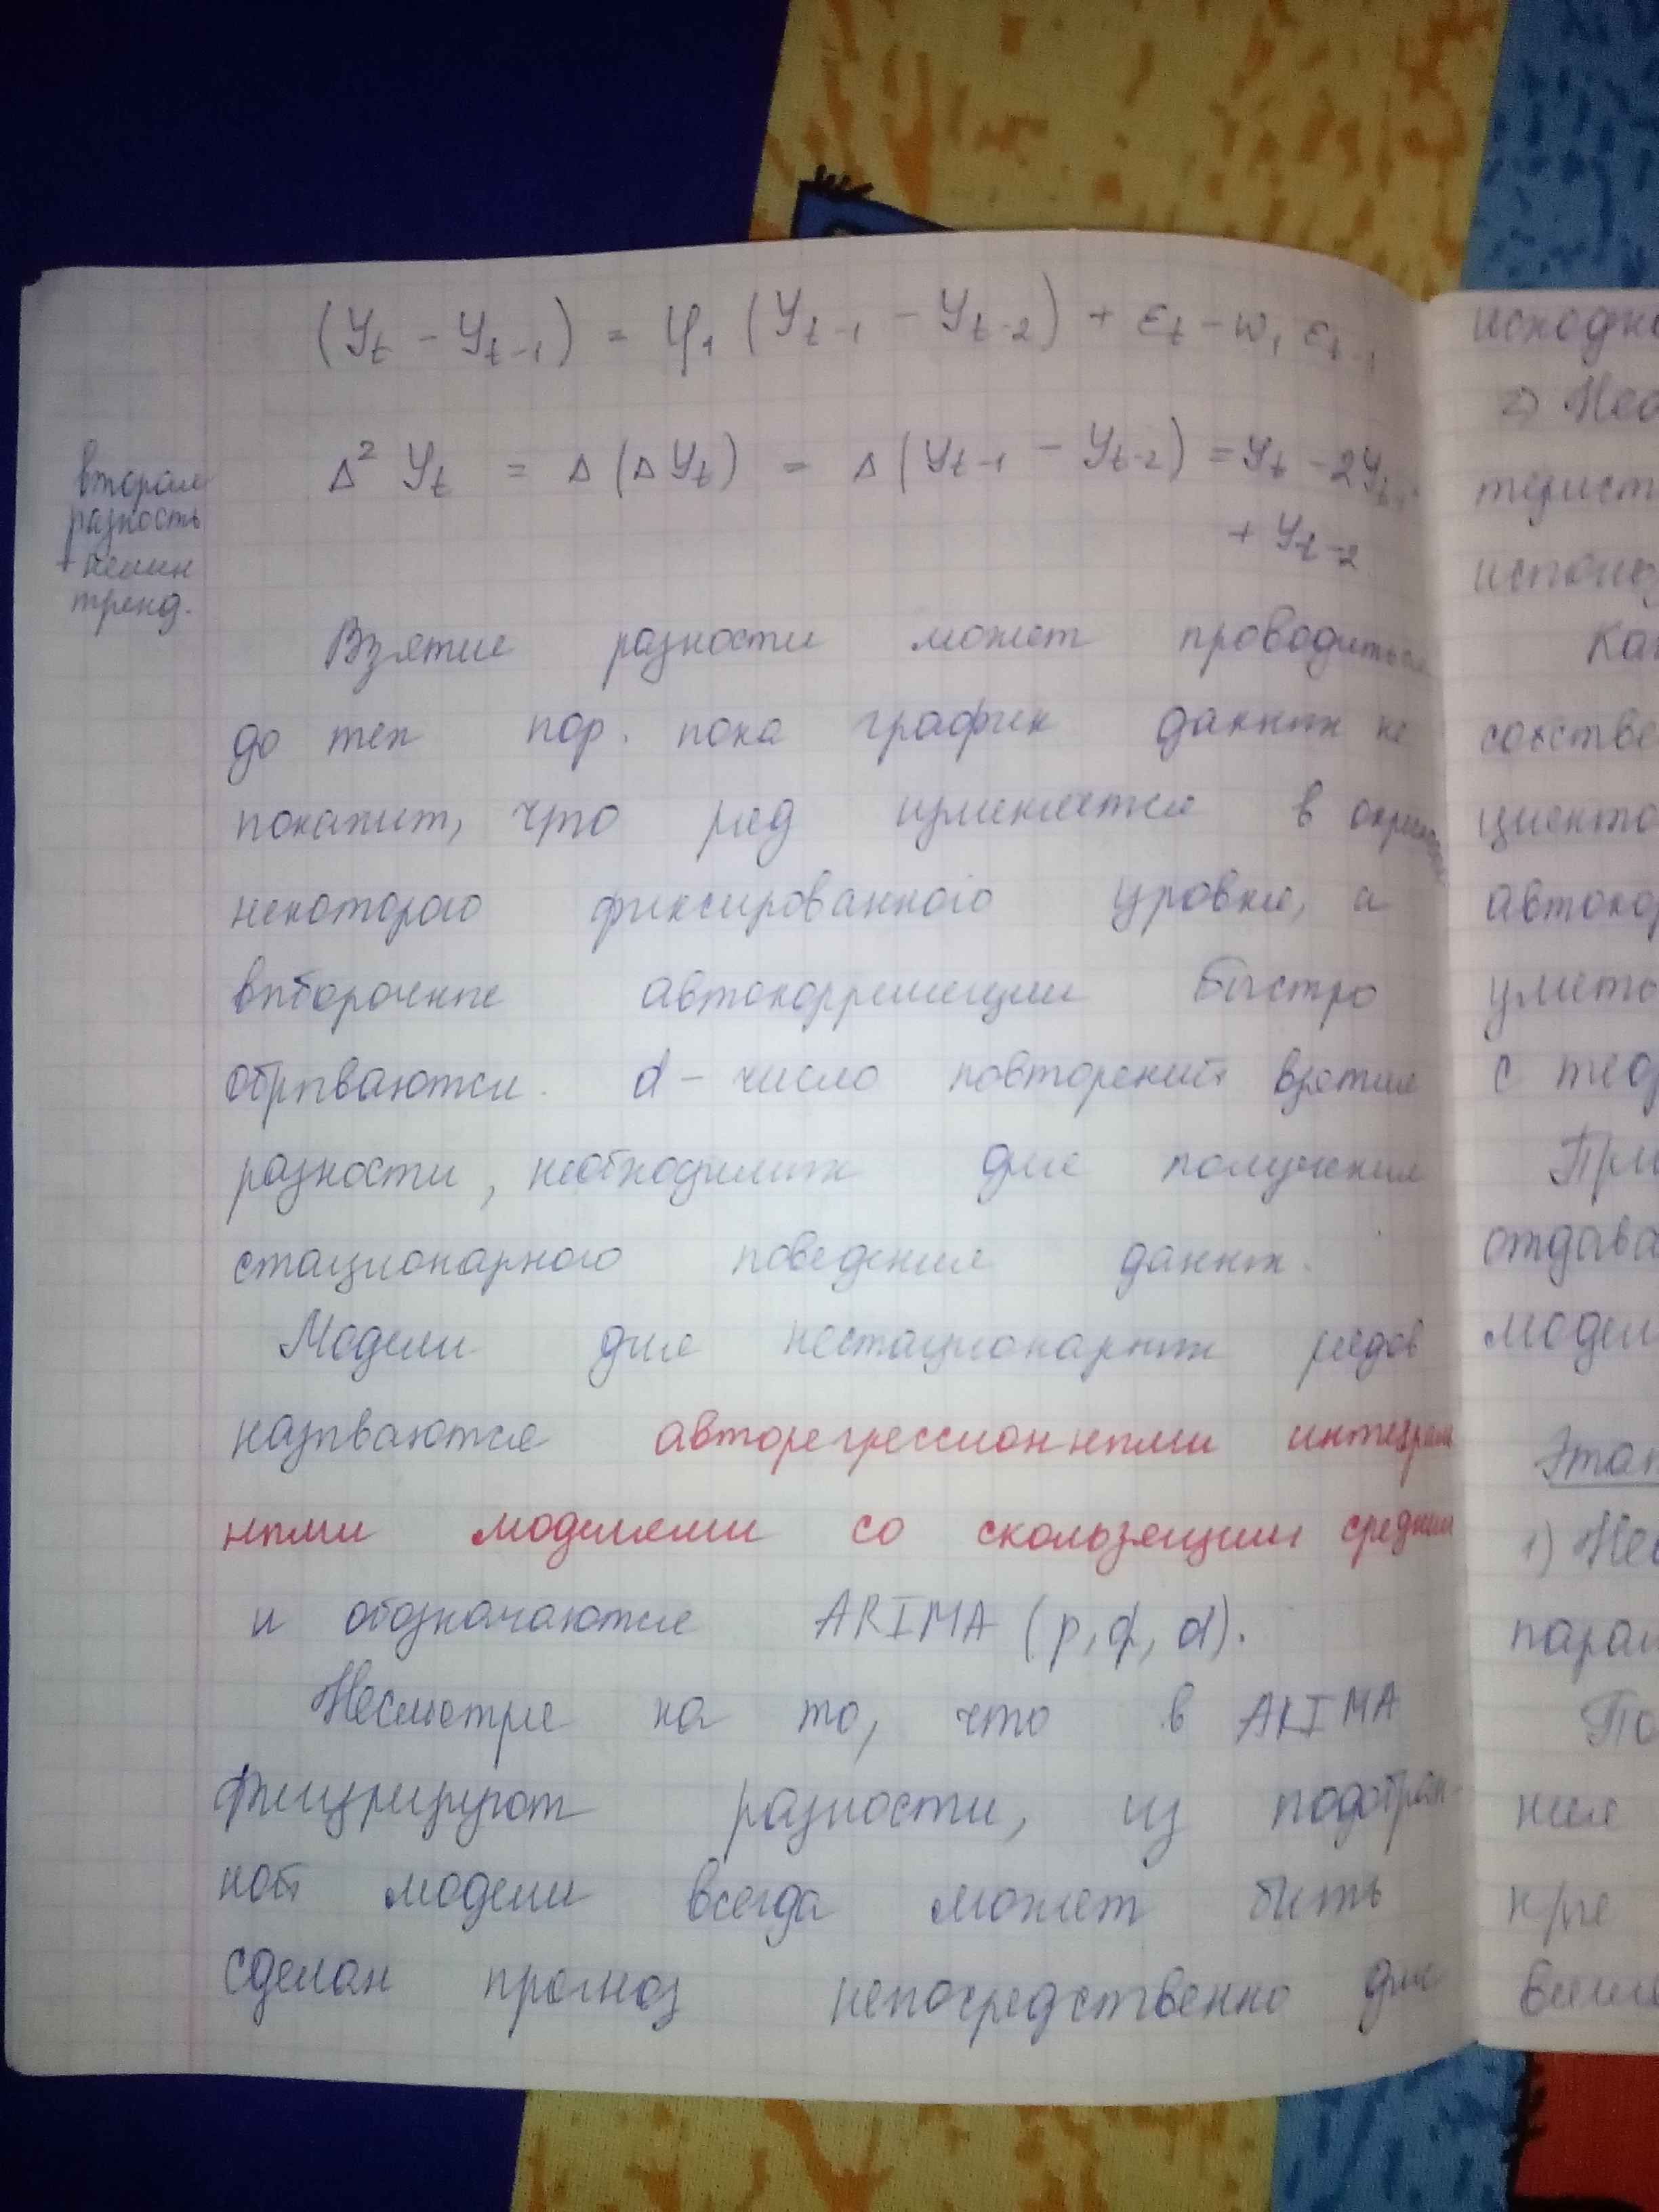 (Yt - Yt-1) = φ1 (Yt-1 - Yt-2) + εt - w1 εt-1
вторая
разность
+ нелин
тренд.
Δ² Yt = Δ (Δ Yt) = Δ (Yt-1 - Yt-2) = Yt - 2Yt-1 +
+ Yt-2
Взятие разности может проводиться
до тех пор. пока график данных не
покажит, что ряд изменяется в
некоторого фиксированного уровня, а
выборочные автокорреляции быстро
обрываются. d - число повторений взятия
разности, необходимых для получения
стационарного поведения данных.
Модели для нестационарных рядов
называются авторегрессионными интеграль
ными моделями со скользящим средним
и обозначаются ARIMA (p, q, d).
Несмотря на то, что в ARIMA
фигурируют разности, из подобран-
ной модели всегда может быть
сделан прогноз непосредственно для
исходно
2)
терист
использ
Как
собстве
циенто
автокор
уметь
с теор
При
отдава
модел
Этап
1)
парам
По
ния